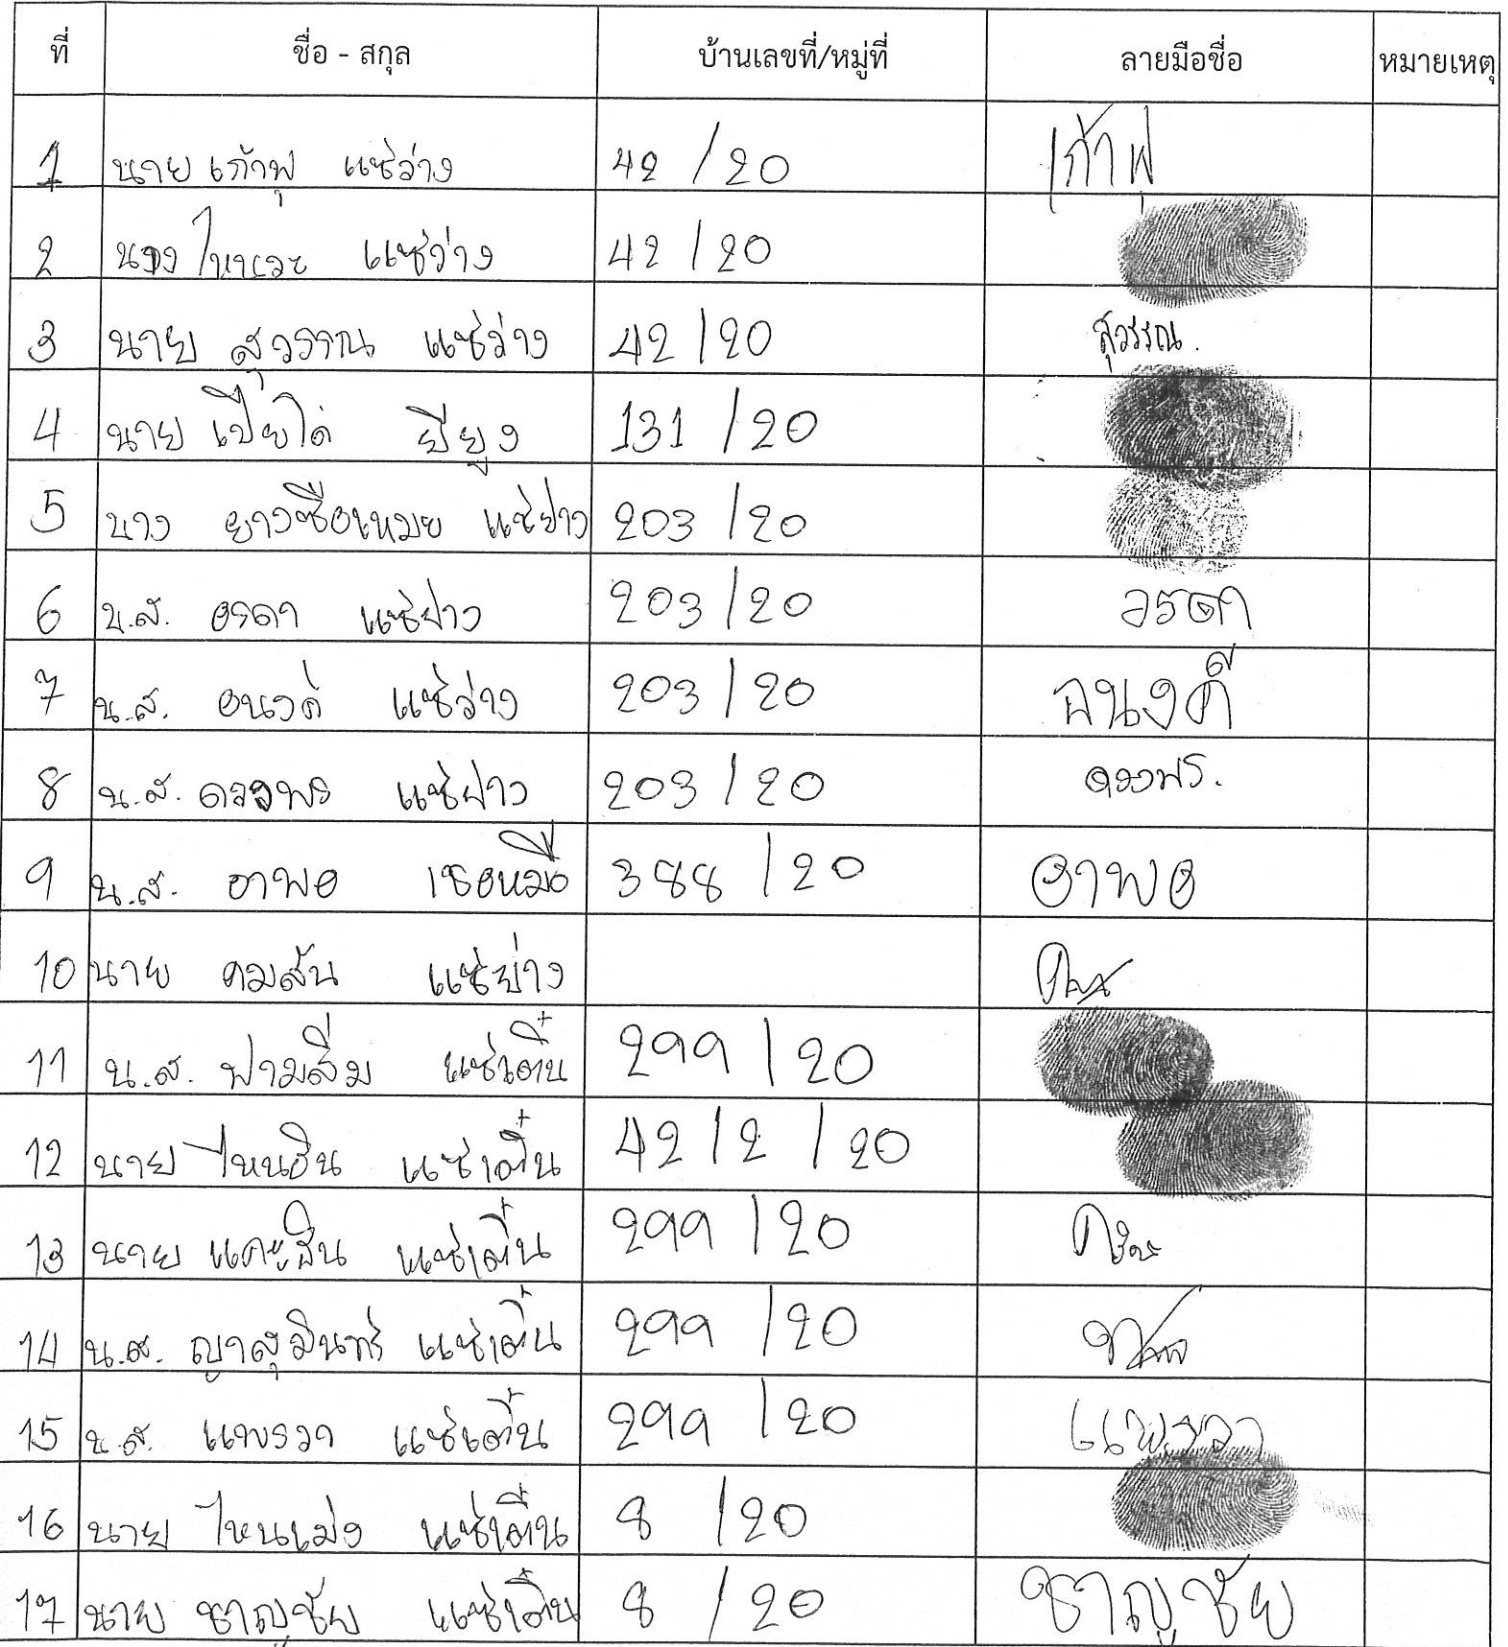 ที่ ชื่อ - สกุล บ้านเลขที่/หมู่ที่ ลายมือชื่อ หมายเหตุ
1 นาย เก้าฟุ แซ่ว่าง 42 /20 เก้าฟุ
2 นาง แซ่ว่าง 42 /20
3 นาย สุวรรณ แซ่ว่าง 42 /20 สุวรรณ.
4 นาย ยียูง 131 /20
5 นาง ยางซือเหมย แซ่ย่าง 203 /20
6 น.ส. อรดา แซ่ย่าง 203 /20 อรดา
7 น.ส. อนงค์ แซ่ว่าง 203 /20 อนงค์
8 น.ส. ดวงพร แซ่ย่าง 203 /20 ดวงพร.
9 น.ส. อาพอ เชอหมื่อ 388 /20 อาพอ
10 นาย คมสัน แซ่ย่าง
11 น.ส. ฟามสิ่ม แซ่เติ๋น 299 /20
12 นาย ไหนฮิน แซ่เติ๋น 42 /2 /20
13 นาย แซ่เติ๋น 299 /20
14 น.ส. ญาสุมินทร์ แซ่เติ๋น 299 /20
15 น.ส. แพรวา แซ่เติ๋น 299 /20 แพรวา
16 นาย ไหนเม่ง แซ่เติ๋น 8 /20
17 นาย ชาญชัย แซ่เติ๋น 8 /20 ชาญชัย